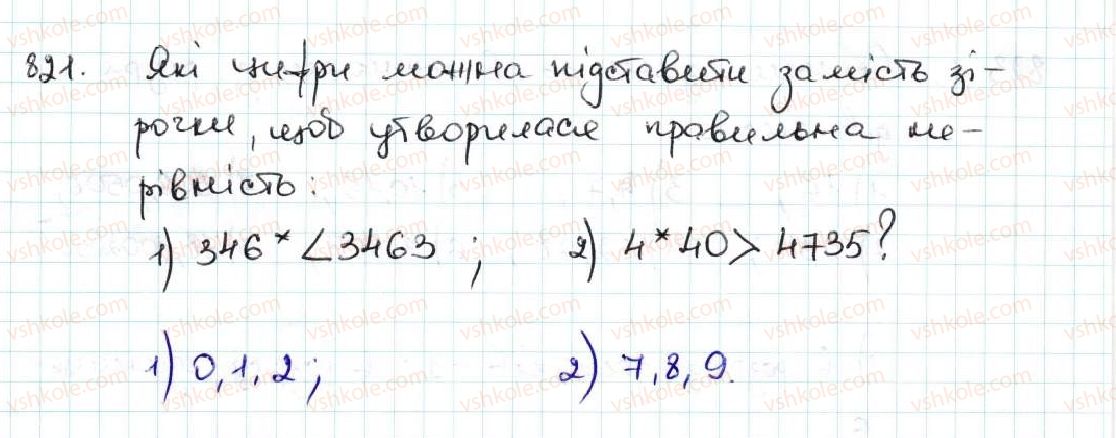 821. Які цифри можна підставити замість зі-
рочки, щоб утворилася правильна не-
рівність:
1) 346* < 3463 ; 2) 4*40 > 4735?
1) 0, 1, 2 ; 2) 7, 8, 9.